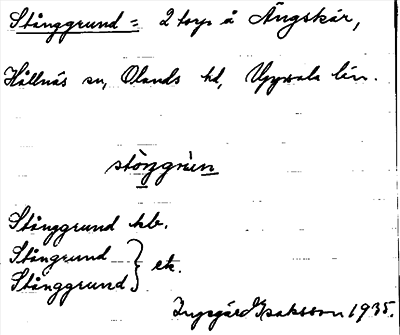 Stånggrund = 2 torp å Ängskär,
Hållnäs sn, Olands hd, Uppsala län.
stòŋgrùn
Stånggrund kb.
Stångrund } ek.
Stånggrund
Ingegärd Isaksson 1935.